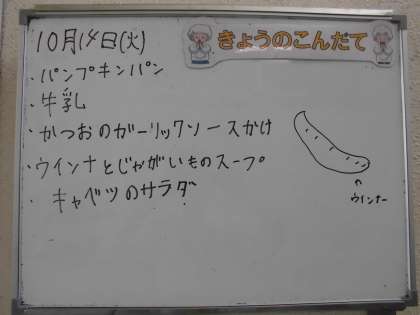 10月14日(火)
きょうのこんだて
・パンプキンパン
・牛乳
・かつおのガーリックソースかけ
・ウインナとじゃがいものスープ
・キャベツのサラダ
↑
ウインナー